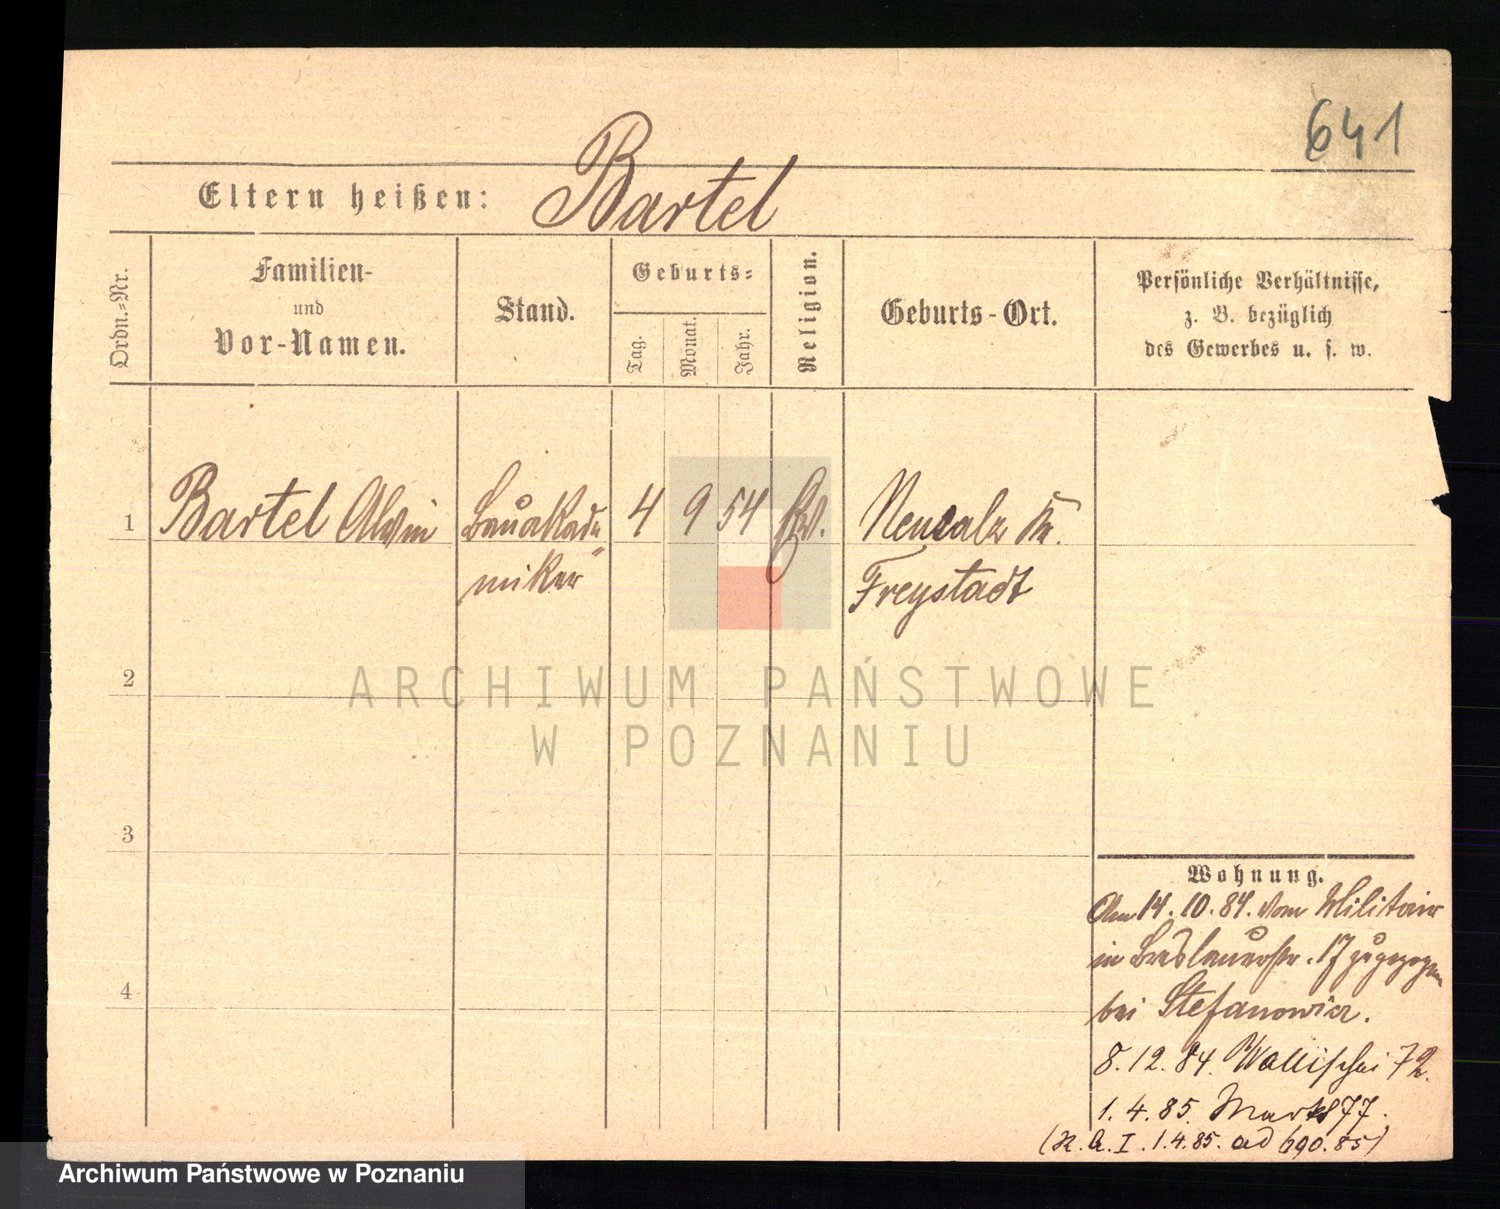 641
Eltern heißen: Bartel
Ordn.-Nr.
Familien-
und
Vor-Namen.
Stand.
Geburts-
Tag.
Monat.
Jahr.
Religion.
Geburts-Ort.
Persönliche Verhältnisse,
z. B. bezüglich
des Gewerbes u. s. w.
1 Bartel Alwin Bauakade 4 9 54 Ev. Neusalz Kr.
miker Freystadt
2
3
4
ARCHIWUM PAŃSTWOWE
W POZNANIU
Wohnung.
Am 14.10.84. vom Militair
in Breslauerstr. 17 zugezogen
bei Stefanowicz.
8.12.84. Wallischei 72.
1.4.85. Markt 77.
(K. A. I. 1.4.85. ad 690.85)
Archiwum Państwowe w Poznaniu